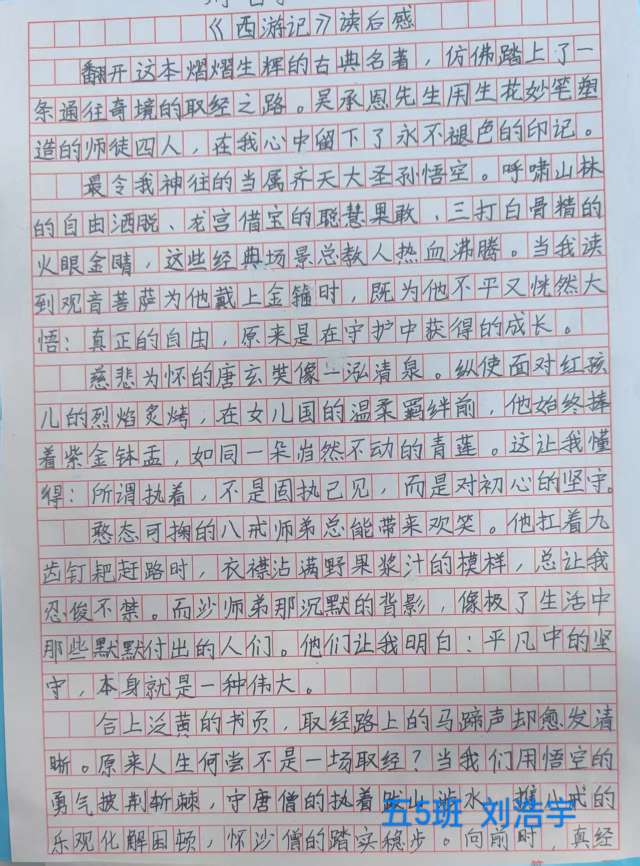 《西游记》读后感
翻开这本熠熠生辉的古典名著，仿佛踏上了一
条通往奇境的取经之路。吴承恩先生用生花妙笔塑
造的师徒四人，在我心中留下了永不褪色的印记。
最令我神往的当属齐天大圣孙悟空。呼啸山林
的自由洒脱、龙宫借宝的聪慧果敢、三打白骨精的
火眼金睛，这些经典场景总教人热血沸腾。当我读
到观音菩萨为他戴上金箍时，既为他不平又恍然大
悟：真正的自由，原来是在守护中获得的成长。
慈悲为怀的唐玄奘像一泓清泉。纵使面对红孩
儿的烈焰炙烤，在女儿国的温柔羁绊前，他始终捧
着紫金钵盂，如同一朵岿然不动的青莲。这让我懂
得：所谓执着，不是固执己见，而是对初心的坚守。
憨态可掬的八戒师弟总能带来欢笑。他扛着九
齿钉耙赶路时，衣襟沾满野果浆汁的模样，总让我
忍俊不禁。而沙师弟那沉默的背影，像极了生活中
那些默默付出的人们。他们让我明白：平凡中的坚
守，本身就是一种伟大。
合上泛黄的书页，取经路上的马蹄声却愈发清
晰。原来人生何尝不是一场取经？当我们用悟空的
勇气披荆斩棘，守唐僧的执着跋山涉水，携八戒的
乐观化解困顿，怀沙僧的踏实稳步。向前时，真经
五5班 刘浩宇